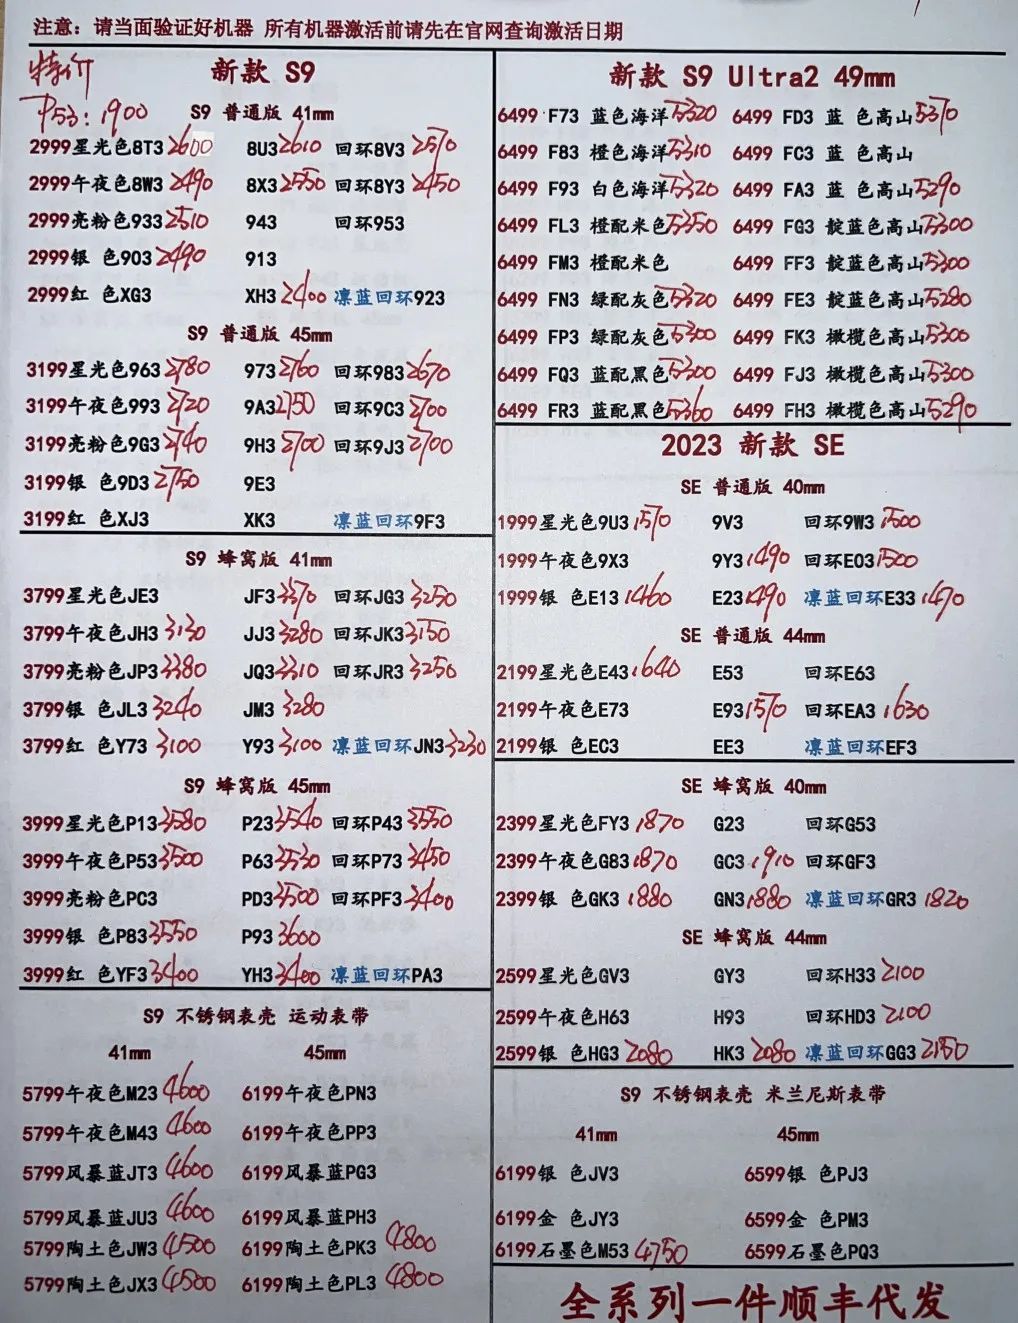 注意：请当面验证好机器 所有机器激活前请先在官网查询激活日期
特价
P53：1900
新款 S9
S9 普通版 41mm
2999星光色8T3 2600 8U3 2610 回环8V3 2570
2999午夜色8W3 2490 8X3 2550 回环8Y3 2450
2999亮粉色933 2510 943 回环953
2999银 色903 2490 913
2999红 色XG3 XH3 2400 凛蓝回环923
S9 普通版 45mm
3199星光色963 2780 973 2760 回环983 2670
3199午夜色993 2720 9A3 2750 回环9C3 2700
3199亮粉色9G3 2740 9H3 2700 回环9J3 2700
3199银 色9D3 2750 9E3
3199红 色XJ3 XK3 凛蓝回环9F3
S9 蜂窝版 41mm
3799星光色JE3 JF3 3370 回环JG3 3250
3799午夜色JH3 3130 JJ3 3280 回环JK3 3150
3799亮粉色JP3 3380 JQ3 3310 回环JR3 3250
3799银 色JL3 3240 JM3 3280
3799红 色Y73 3100 Y93 3100 凛蓝回环JN3 3230
S9 蜂窝版 45mm
3999星光色P13 3580 P23 3540 回环P43 3550
3999午夜色P53 3500 P63 3530 回环P73 3450
3999亮粉色PC3 PD3 3500 回环PF3 3400
3999银 色P83 3550 P93 3600
3999红 色YF3 3400 YH3 3400 凛蓝回环PA3
S9 不锈钢表壳 运动表带
41mm 45mm
5799午夜色M23 4600 6199午夜色PN3
5799午夜色M43 4600 6199午夜色PP3
5799风暴蓝JT3 4600 6199风暴蓝PG3
5799风暴蓝JU3 4600 6199风暴蓝PH3
5799陶土色JW3 4500 6199陶土色PK3 4800
5799陶土色JX3 4500 6199陶土色PL3 4800
新款 S9 Ultra2 49mm
6499 F73 蓝色海洋 5320 6499 FD3 蓝 色高山 5370
6499 F83 橙色海洋 5310 6499 FC3 蓝 色高山
6499 F93 白色海洋 5320 6499 FA3 蓝 色高山 5290
6499 FL3 橙配米色 5350 6499 FG3 靛蓝色高山 5300
6499 FM3 橙配米色 6499 FF3 靛蓝色高山 5300
6499 FN3 绿配灰色 5320 6499 FE3 靛蓝色高山 5280
6499 FP3 绿配灰色 5300 6499 FK3 橄榄色高山 5300
6499 FQ3 蓝配黑色 5300 6499 FJ3 橄榄色高山 5300
6499 FR3 蓝配黑色 5360 6499 FH3 橄榄色高山 5290
2023 新款 SE
SE 普通版 40mm
1999星光色9U3 1570 9V3 回环9W3 1500
1999午夜色9X3 9Y3 1490 回环E03 1500
1999银 色E13 1460 E23 1490 凛蓝回环E33 1470
SE 普通版 44mm
2199星光色E43 1640 E53 回环E63
2199午夜色E73 E93 1570 回环EA3 1630
2199银 色EC3 EE3 凛蓝回环EF3
SE 蜂窝版 40mm
2399星光色FY3 1870 G23 回环G53
2399午夜色G83 1870 GC3 1910 回环GF3
2399银 色GK3 1880 GN3 1880 凛蓝回环GR3 1820
SE 蜂窝版 44mm
2599星光色GV3 GY3 回环H33 2100
2599午夜色H63 H93 回环HD3 2100
2599银 色HG3 2080 HK3 2080 凛蓝回环GG3 2150
S9 不锈钢表壳 米兰尼斯表带
41mm 45mm
6199银 色JV3 6599银 色PJ3
6199金 色JY3 6599金 色PM3
6199石墨色M53 4750 6599石墨色PQ3
全系列一件顺丰代发